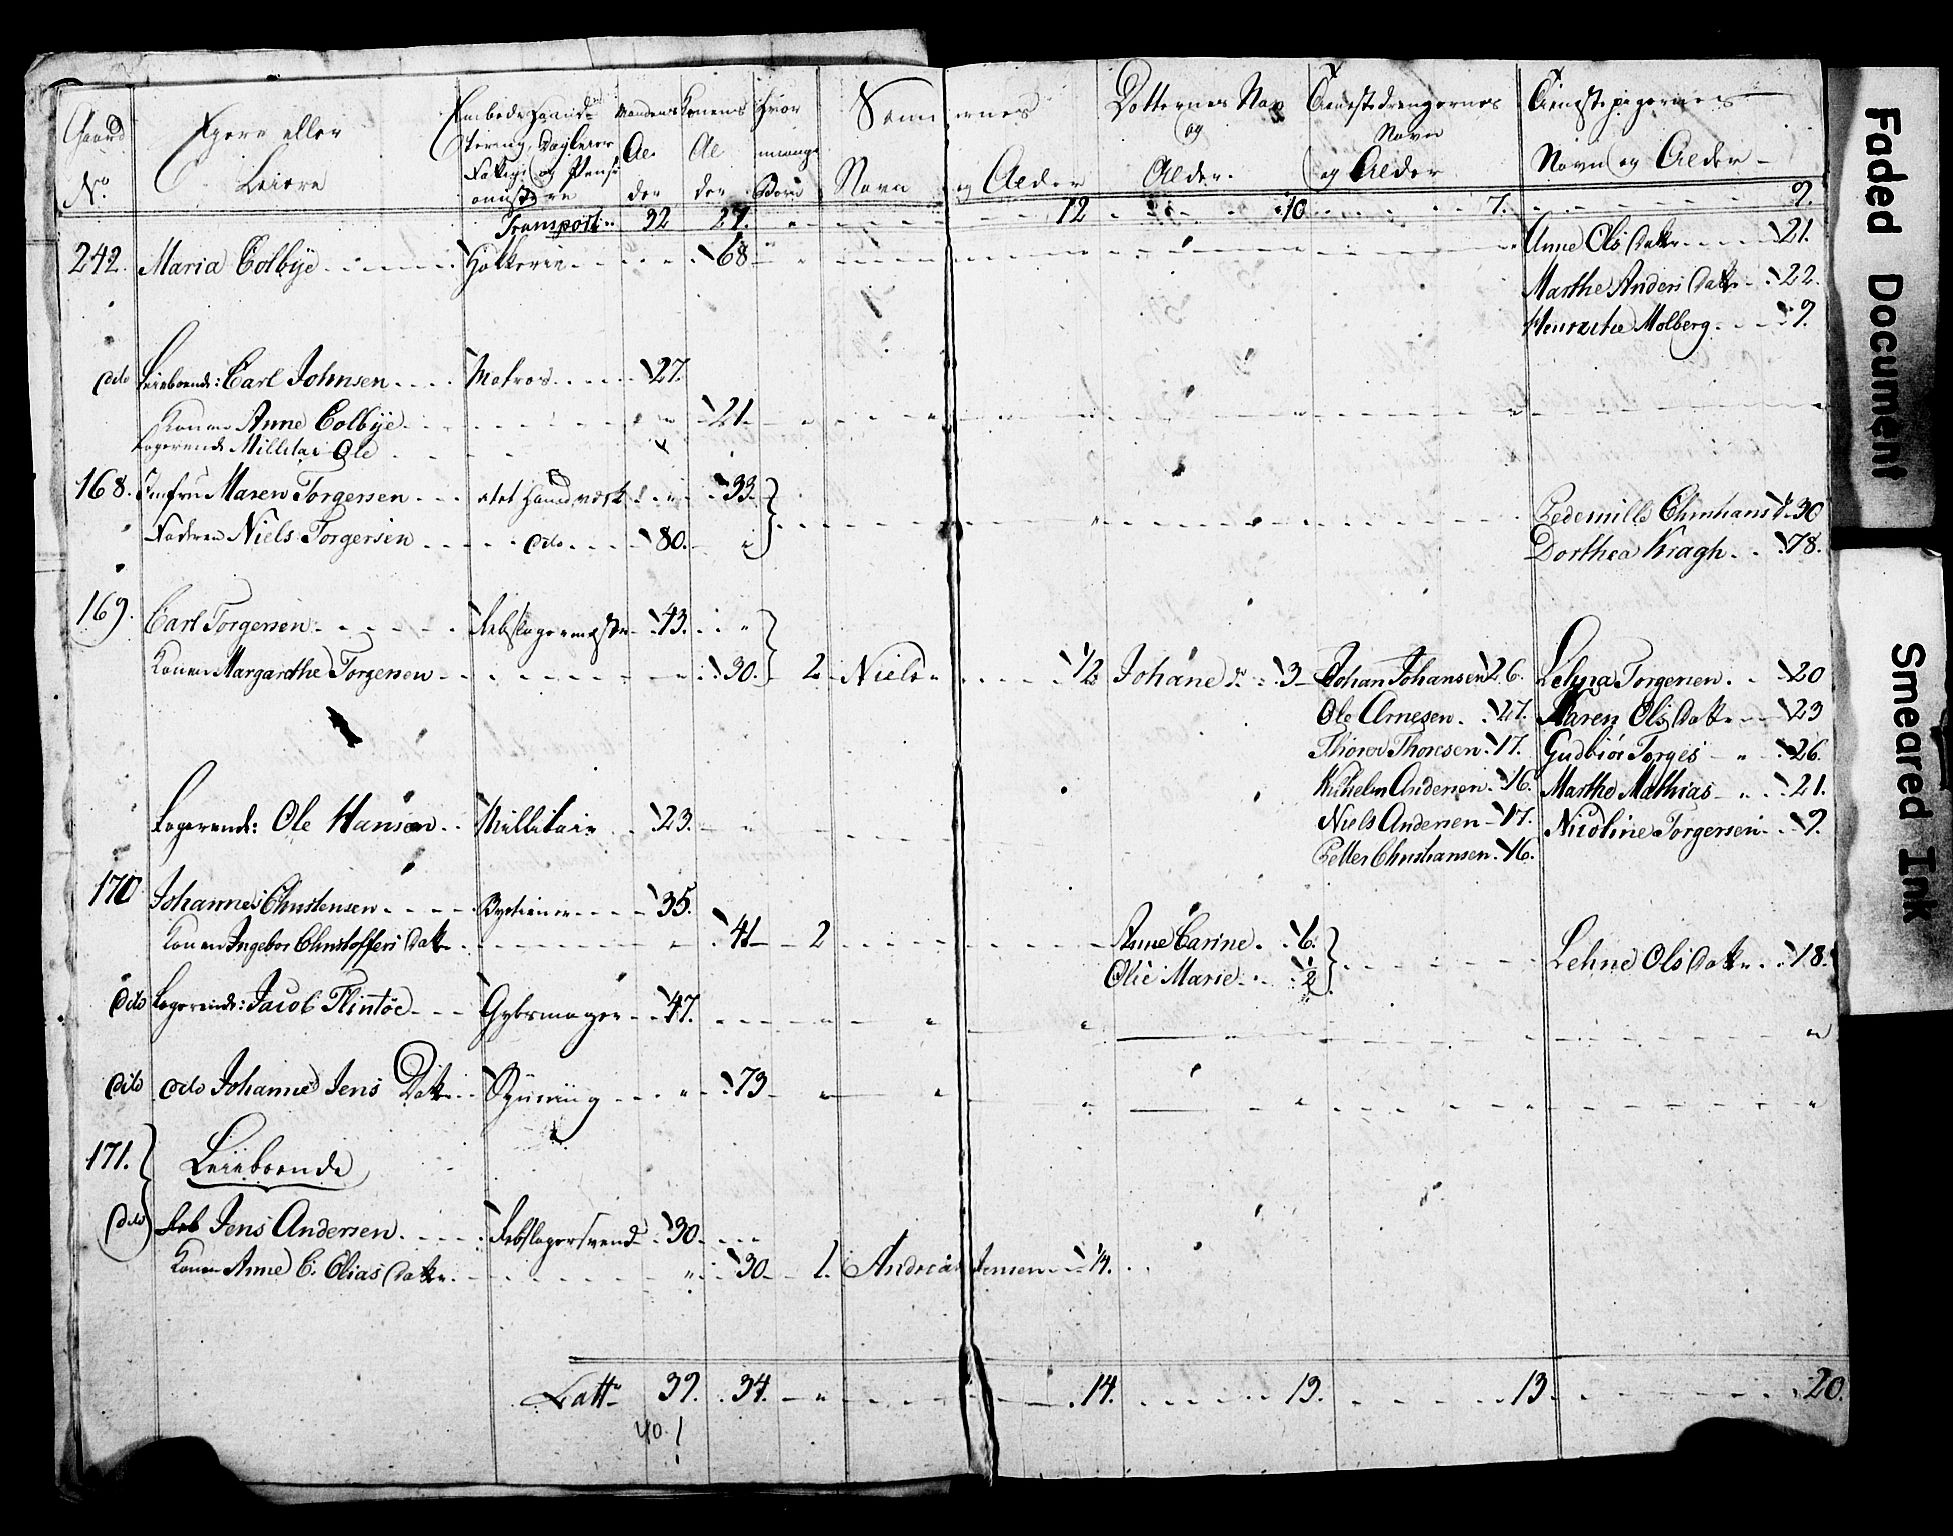 Gaard No
Eyere eller Leiere
Mandens Alder
Konens Alder
Hvor mange Børn
Sønnernes Navn og Alder
Døtternes Navn og Alder
Tienestedrengernes Navn og Alder
Tienestepigernes Navn og Alder
Transport 32 27. 12 10 7. 9.
242. Maria Colbye Høkkerie 68 Anne Ols Datter 21.
Marthe Anders Datter 22.
Molberg 9.
dito Leieboende: Carl Johnsen Matros 27.
Konen Anne Colbye 21
Logerende Millitai Ole
168. Jomfru Maren Torgersen Haandværk 33 Pedernille Christians 30
Faderen Niels Torgersen dito 80. Dorthea Kragh 78.
169. Carl Torgersen Rebslagermester 43.
Konen Margarethe Torgersen 30. 2 Niels 1/2 Johane 3 Johan Johansen 26. Lehna Torgersen 20
Ole Arnesen 27. Maren Ols Datter 23
Thoresen 17. Gudbiør Torges 26.
Wilhelm Andersen 16. Marthe Mathias 21.
Logerende: Ole Hansen Millitair 23. Niels Andersen 17. Nicoline Torgersen 9.
Petter Christiansen 16.
170 Johannes Christensen Bytiener 35.
Konen Ingebor Christoffers Datter 41 2 Anne Carine 6. Lehne Ols Datter 18.
Olie Marie 2
dito Logerende: Jacob Flintöe Gybsmager 47.
dito dito Johanne Jens Datter 73
171. Leieboende
dito Jens Andersen Rebslagersvend 30
Konen Anne C. Elias Datter 30 1. Andreas Jensen 1/4.
Latt 39. 34. 14. 13. 13. 20.
40!
Faded Document
Smeared Ink